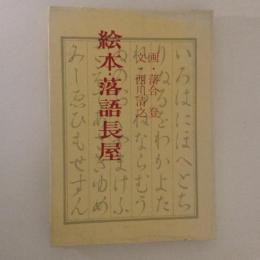 画・落合 登
文・西川清之
絵本・落語長屋
いろはにほへとち
りぬるをわかよた
れそつねならむう
ゐのおくやまけふ
こえてあさきゆめ
みしゑひもせすん